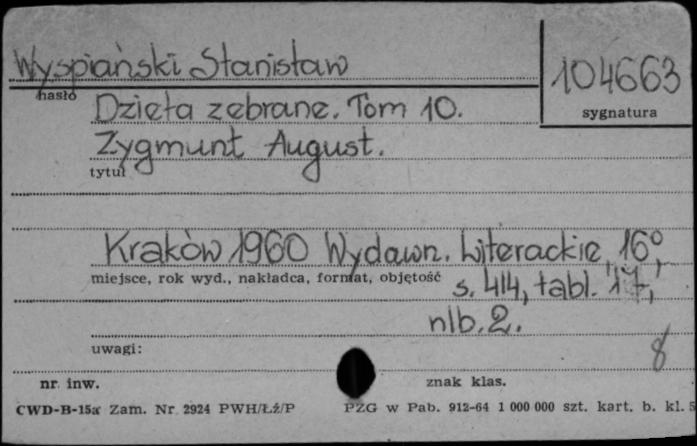 Wyspiański Stanisław
104663
hasło
sygnatura
Dzieła zebrane. Tom 10.
Zygmunt August.
tytuł
Kraków 1960 Wydawn. Literackie, 16°,
miejsce, rok wyd., nakładca, format, objętość
s. 414, tabl. 17,
nlb. 2.
uwagi:
8
nr. inw.
znak klas.
CWD-B-15a Zam. Nr 2924 PWH/Łź/P
PZG w Pab. 912-64 1 000 000 szt. kart. b. kl. 5